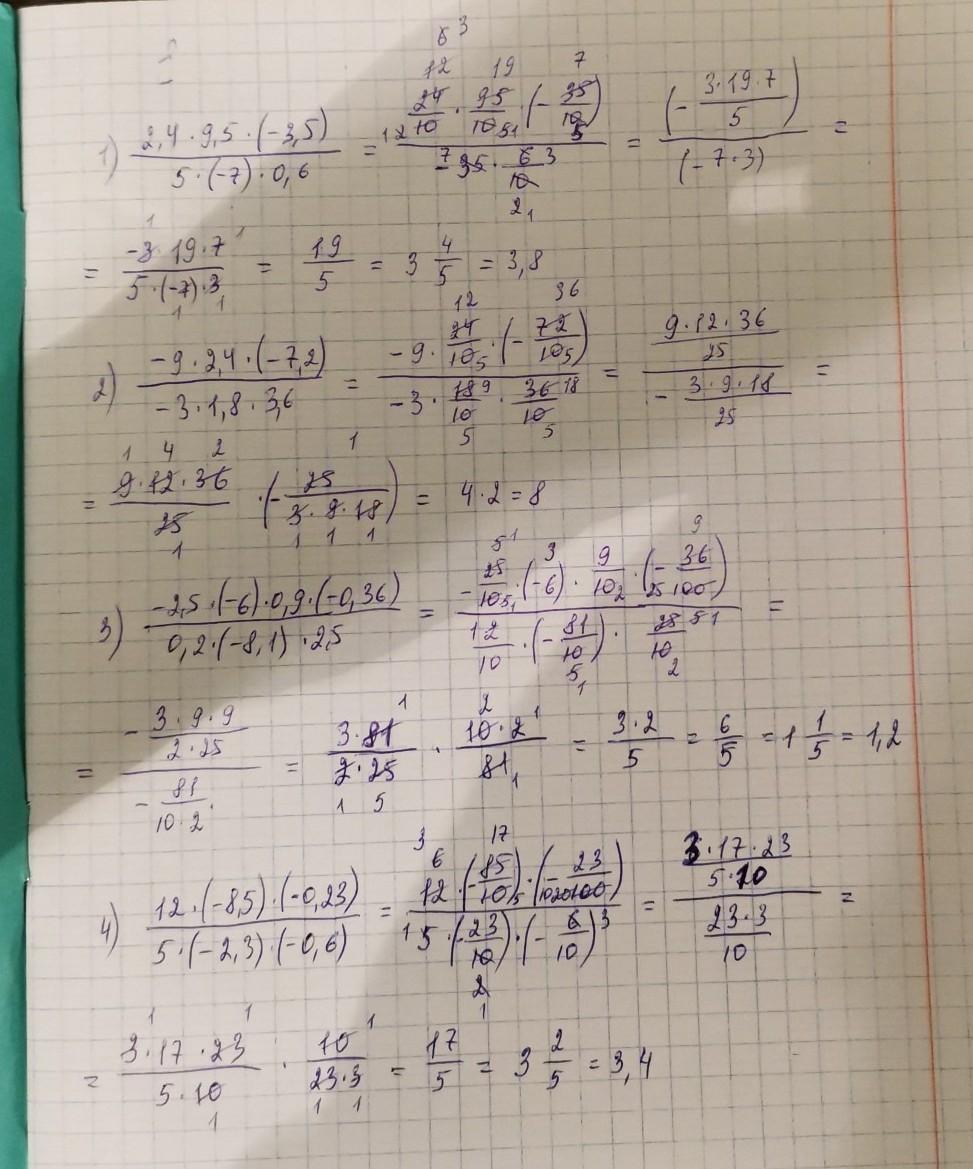 1) \frac{2,4 · 9,5 · (-3,5)}{5 · (-7) · 0,6} = \frac{\frac{24}{10} · \frac{95}{10} · (-\frac{35}{10})}{-35 · \frac{6}{10}} = \frac{(-\frac{3·19·7}{5})}{(-7·3)} =
= \frac{-3·19·7}{5·(-7)·3} = \frac{19}{5} = 3\frac{4}{5} = 3,8
2) \frac{-9 · 2,4 · (-7,2)}{-3 · 1,8 · 3,6} = \frac{-9 · \frac{24}{10} · (-\frac{72}{10})}{-3 · \frac{18}{10} · \frac{36}{10}} = \frac{\frac{9·12·36}{25}}{-\frac{3·9·18}{25}} =
= \frac{9·12·36}{25} · (-\frac{25}{3·9·18}) = 4·2 = 8
3) \frac{-2,5 · (-6) · 0,9 · (-0,36)}{0,2 · (-8,1) · 2,5} = \frac{-\frac{25}{10} · (-6) · \frac{9}{10} · (-\frac{36}{100})}{\frac{2}{10} · (-\frac{81}{10}) · \frac{25}{10}} =
= \frac{-\frac{3·9·9}{2·25}}{-\frac{81}{10·2}} = \frac{3·81}{2·25} · \frac{10·2}{81} = \frac{3·2}{5} = \frac{6}{5} = 1\frac{1}{5} = 1,2
4) \frac{12 · (-8,5) · (-0,23)}{5 · (-2,3) · (-0,6)} = \frac{12 · (-\frac{85}{10}) · (-\frac{23}{100})}{5 · (-\frac{23}{10}) · (-\frac{6}{10})} = \frac{\frac{3·17·23}{5·10}}{\frac{23·3}{10}} =
= \frac{3·17·23}{5·10} · \frac{10}{23·3} = \frac{17}{5} = 3\frac{2}{5} = 3,4